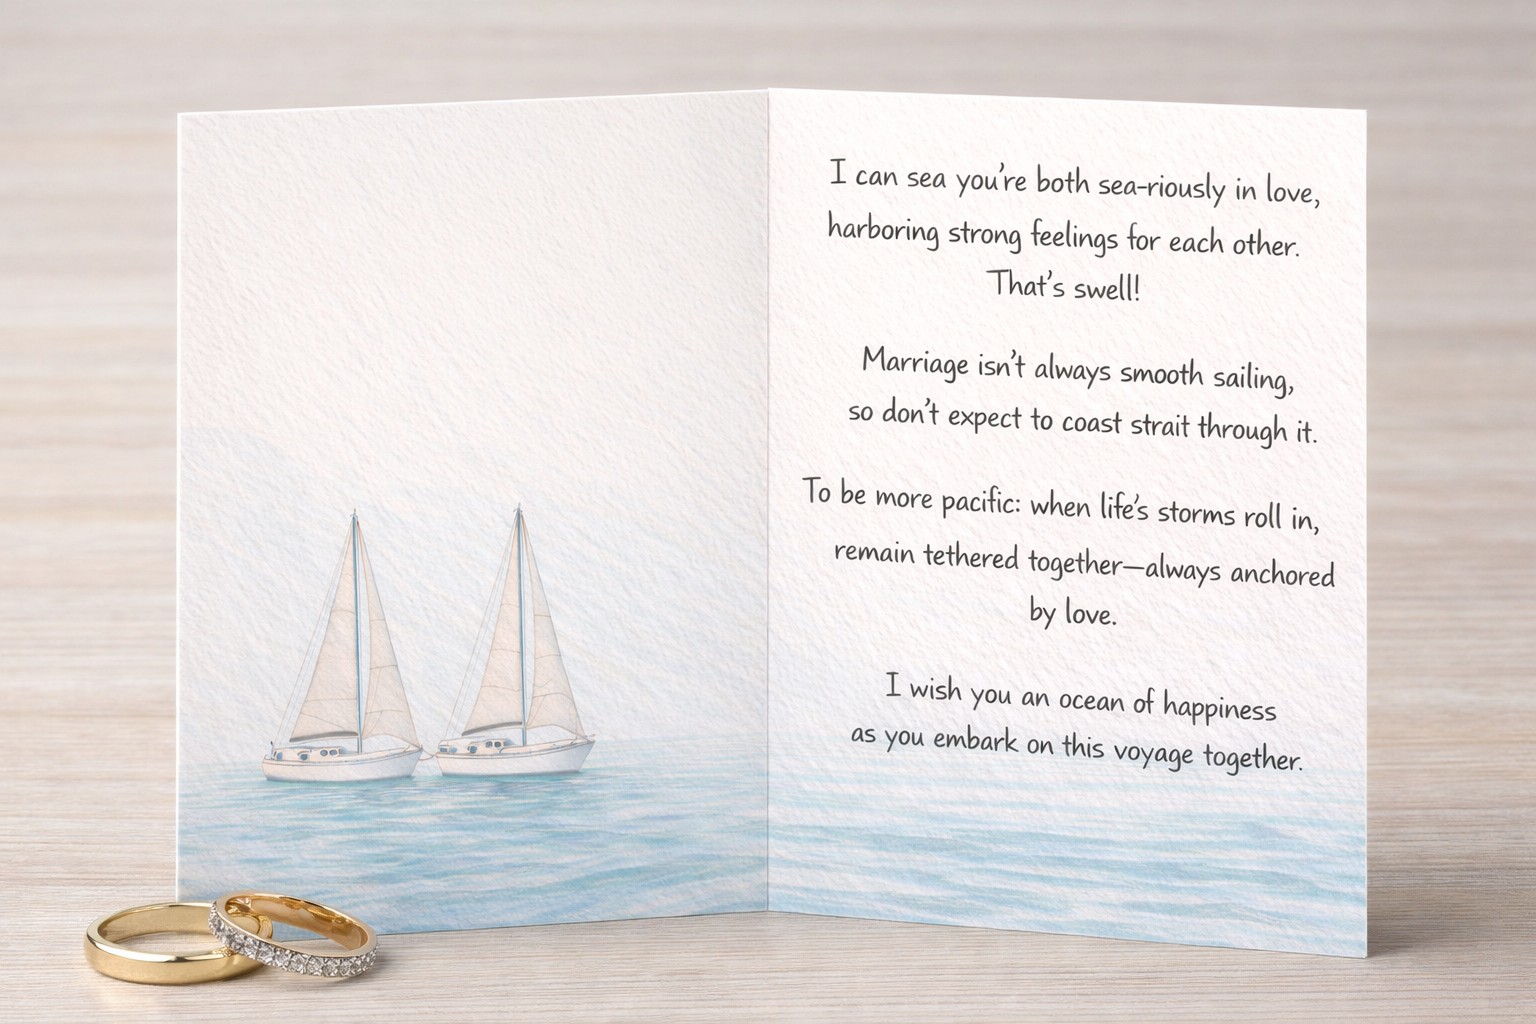 I can sea you're both sea-riously in love,
harboring strong feelings for each other.
That's swell!
Marriage isn't always smooth sailing,
so don't expect to coast strait through it.
To be more pacific: when life's storms roll in,
remain tethered together—always anchored
by love.
I wish you an ocean of happiness
as you embark on this voyage together.